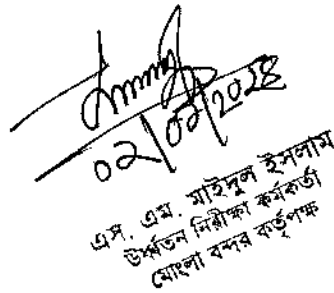 ০২/০৬/২০২৪
এস. এম. মাইদুল ইসলাম
উর্ধ্বতন নিরীক্ষা কর্মকর্তা
মোংলা বন্দর কর্তৃপক্ষ